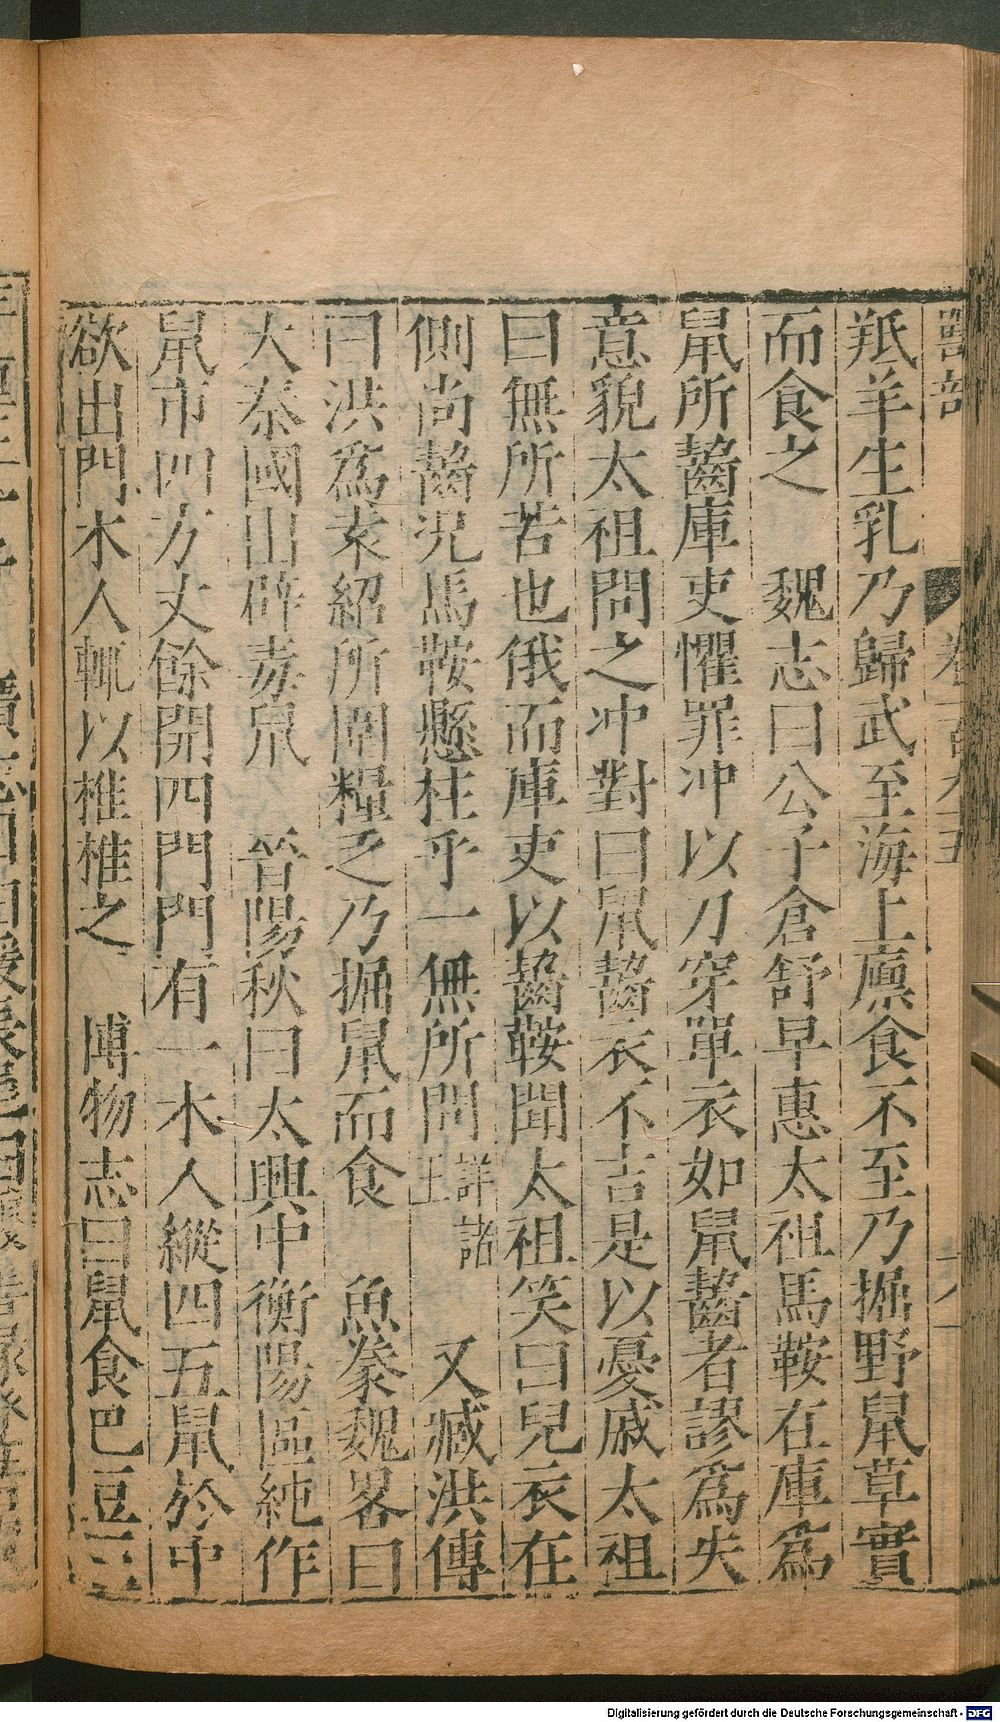 獸部 卷 九十五
羝羊生乳乃歸武至海上廩食不至乃掘野鼠草實
而食之 魏志曰公子倉舒早惠太祖馬鞍在庫爲
鼠所齧庫吏懼罪冲以刀穿單衣如鼠齧者謬爲失
意貌太祖問之冲對曰鼠齧衣不吉是以憂戚太祖
曰無所苦也俄而庫吏以齧鞍聞太祖笑曰兒衣在
側尚齧况馬鞍懸柱乎一無所問詳諸王 又臧洪傳
曰洪爲袁紹所圍糧乏乃掘鼠而食 魚豢魏畧曰
大秦國出辟毒鼠 晉陽秋曰太興中衡陽區純作
鼠市四方丈餘開四門門有一木人縱四五鼠於中
欲出門木人輒以椎椎之 博物志曰鼠食巴豆三
Digitalisierung gefördert durch die Deutsche Forschungsgemeinschaft - DFG